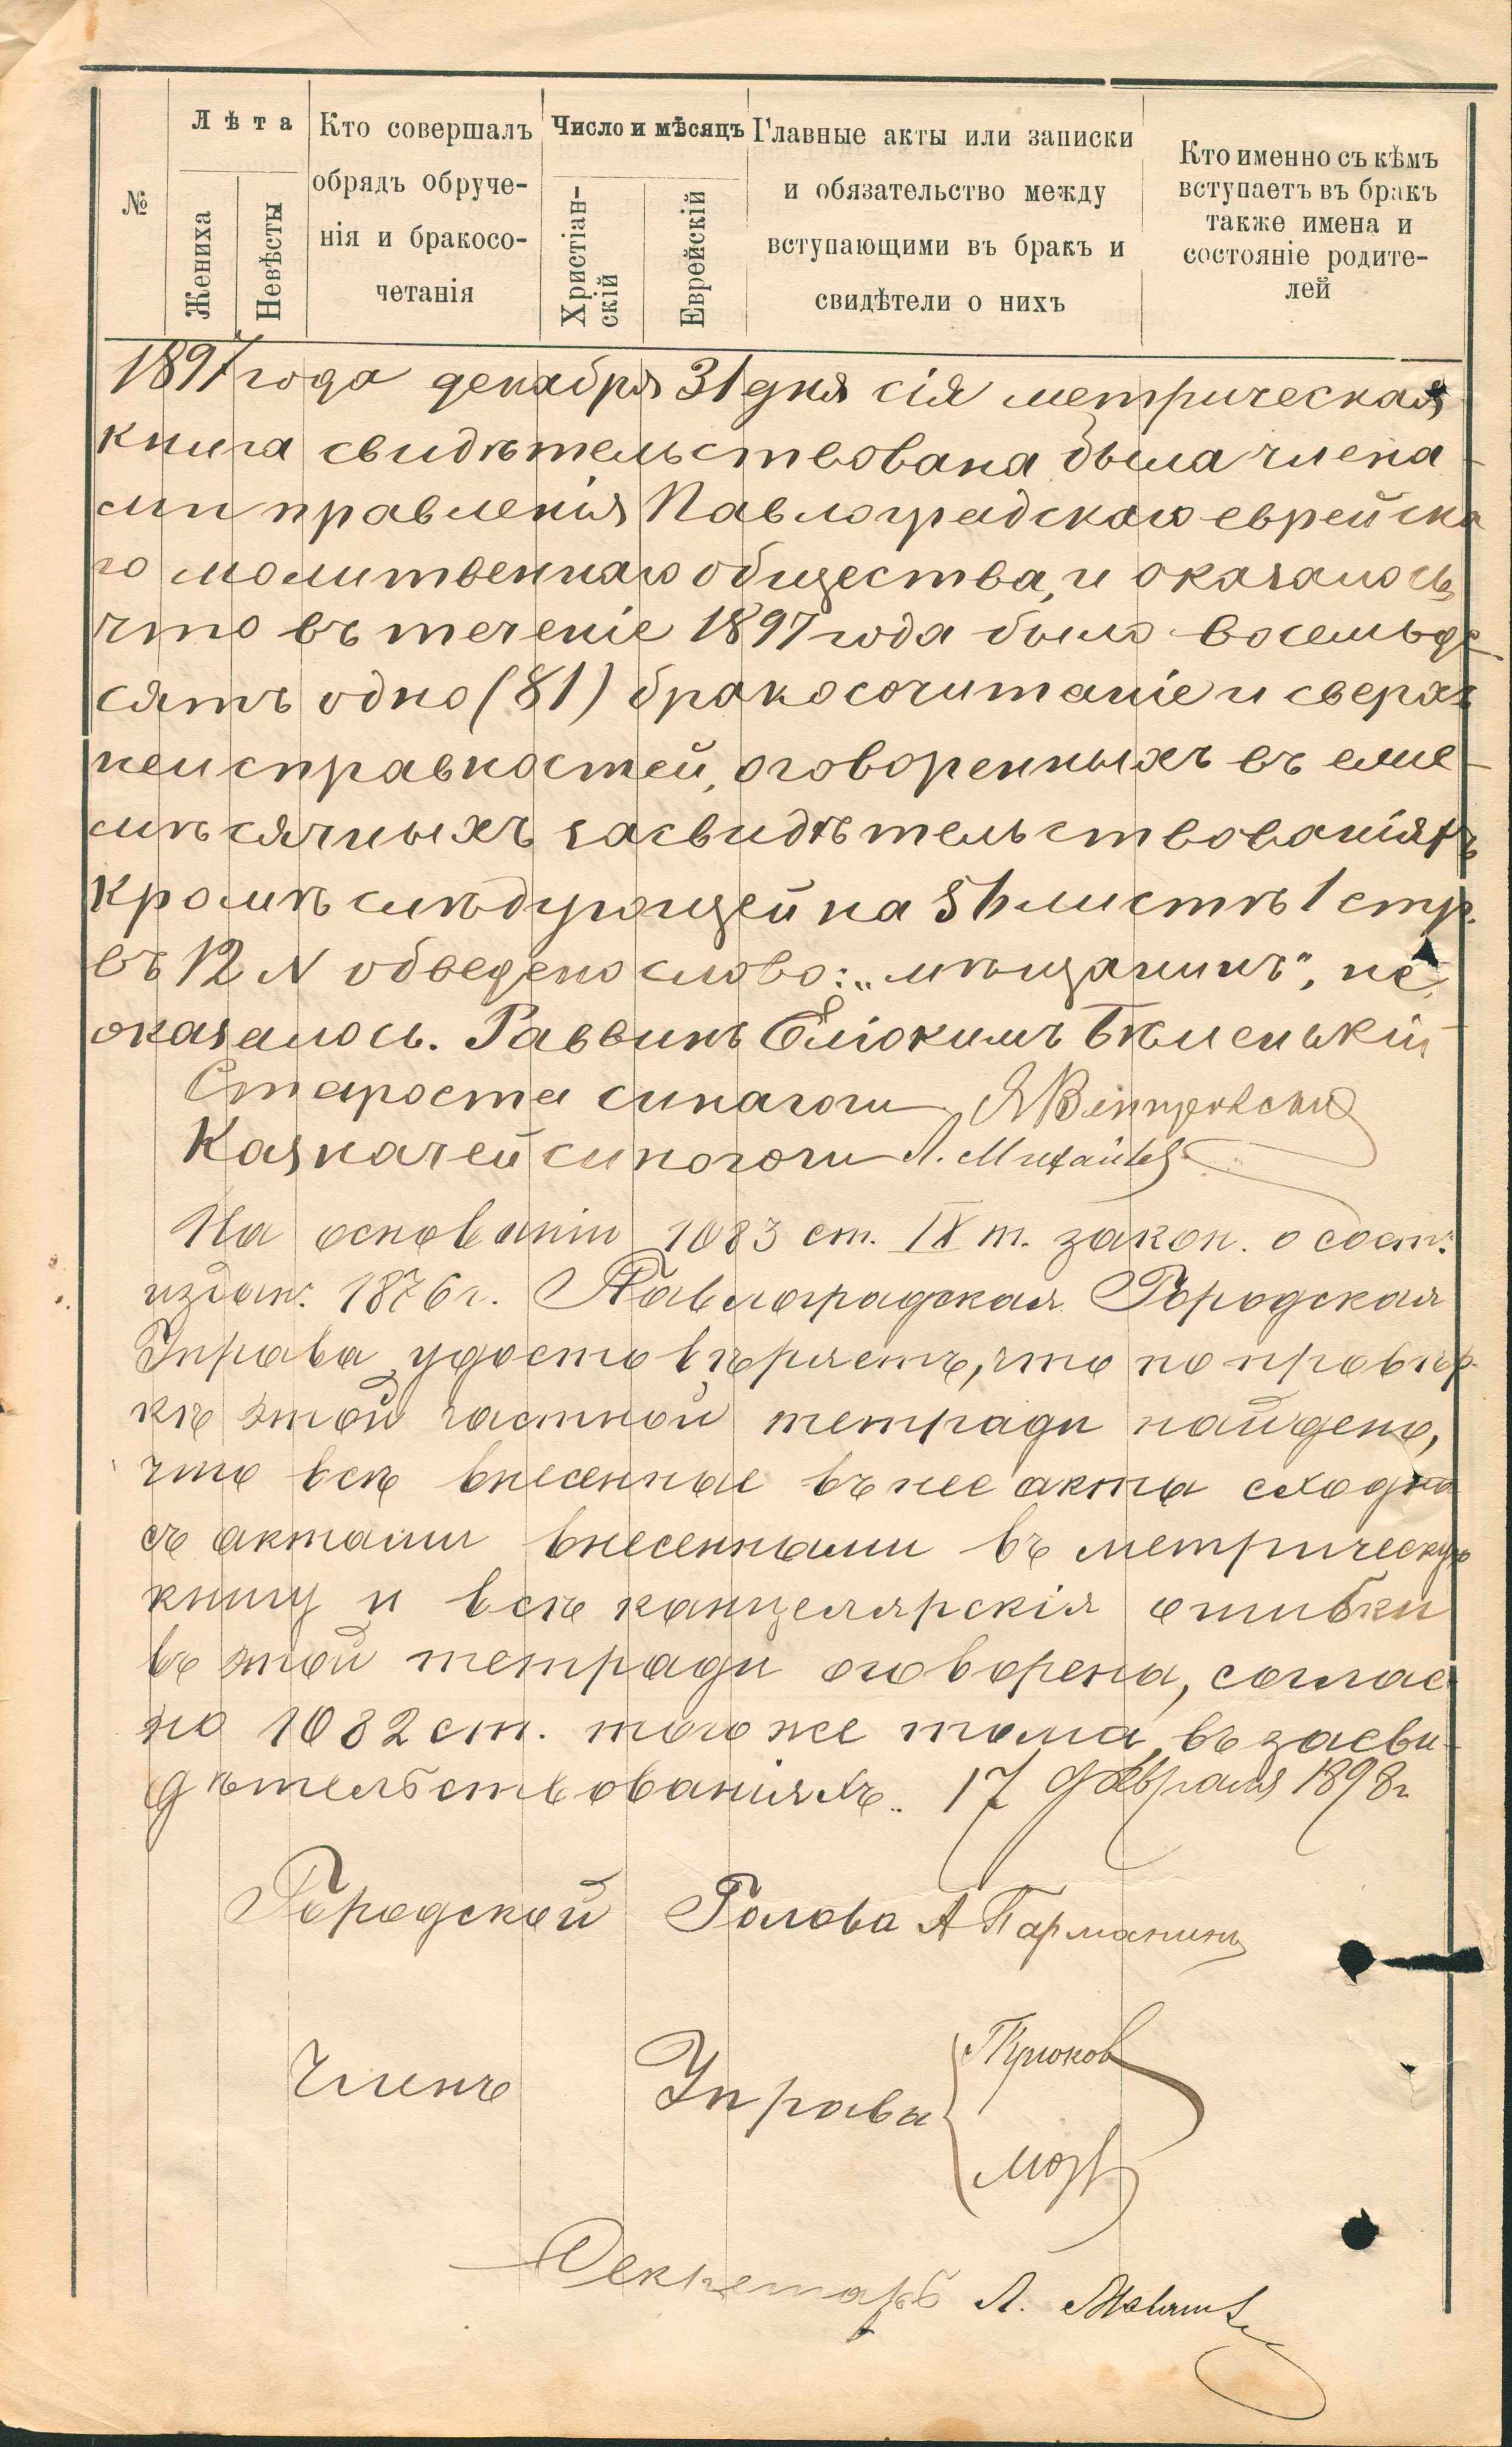 №
Лѣта
Жениха
Невѣсты
Кто совершалъ
обрядъ обруче-
нія и бракосо-
четанія
Число и мѣсяцъ
Христіан-
скій
Еврейскій
Главные акты или записки
и обязательство между
вступающими въ бракъ и
свидѣтели о нихъ
Кто именно съ кѣмъ
вступаетъ въ бракъ
также имена и
состояніе родите-
лей
1897 года декабря 31 дня сія метрическая
книга свидѣтельствована была члена-
ми правленія Павлоградскаго еврейска
го молитвеннаго общества, и оказалось,
что въ теченіе 1897 года было восемьде-
сятъ одно (81) бракосочитаніе и сверхъ
неисправностей, оговоренныхъ въ еже-
мѣсячныхъ засвидѣтельствованіяхъ
кромѣ слѣдующей на листѣ 1 стр.
въ 12 N обведено слово: „мѣщанинъ", не
оказалось. Раввинъ Еліокимъ Бѣленькій
Староста синагоги
Казначей синогоги Л.
На основаніи 1083 ст. IX т. закон. о сост.
издан. 1876 г. Павлоградская Городская
Управа удостовѣряетъ, что по провѣр-
кѣ этой частной тетради найдено,
что всѣ внесенные въ нее акты сходны
съ актами внесенными въ метрическую
книгу и всѣ канцелярскія ошибки
въ этой тетради оговорены, соглас
но 1082 ст. того же тома, въ засви-
дѣтельствованіяхъ. 17 февраля 1898 г.
Городской Голова А
Членъ Управы
Секретарь Л.